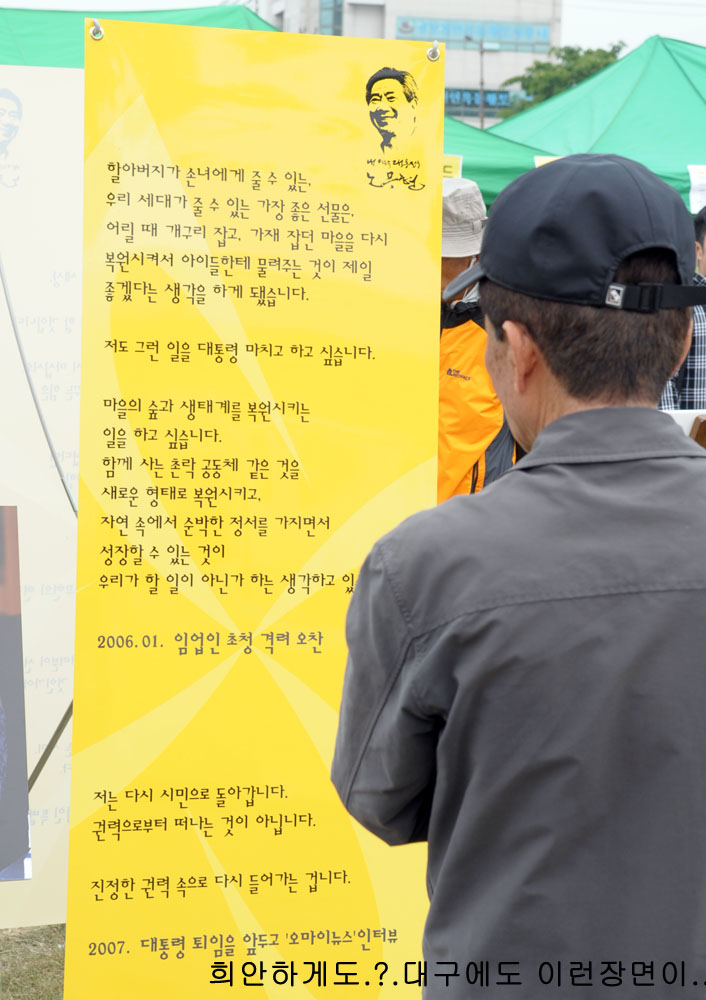 노무현
할아버지가 손녀에게 줄 수 있는,
우리 세대가 줄 수 있는 가장 좋은 선물은,
어릴 때 개구리 잡고, 가재 잡던 마을을 다시
복원시켜서 아이들한테 물려주는 것이 제일
좋겠다는 생각을 하게 됐습니다.
저도 그런 일을 대통령 마치고 하고 싶습니다.
마을의 숲과 생태계를 복원시키는
일을 하고 싶습니다.
함께 사는 촌락 공동체 같은 것을
새로운 형태로 복원시키고,
자연 속에서 순박한 정서를 가지면서
성장할 수 있는 것이
우리가 할 일이 아닌가 하는 생각하고 있
2006.01. 임업인 초청 격려 오찬
저는 다시 시민으로 돌아갑니다.
권력으로부터 떠나는 것이 아닙니다.
진정한 권력 속으로 다시 들어가는 겁니다.
2007. 대통령 퇴임을 앞두고 '오마이뉴스'인터뷰
희안하게도.?.대구에도 이런장면이..